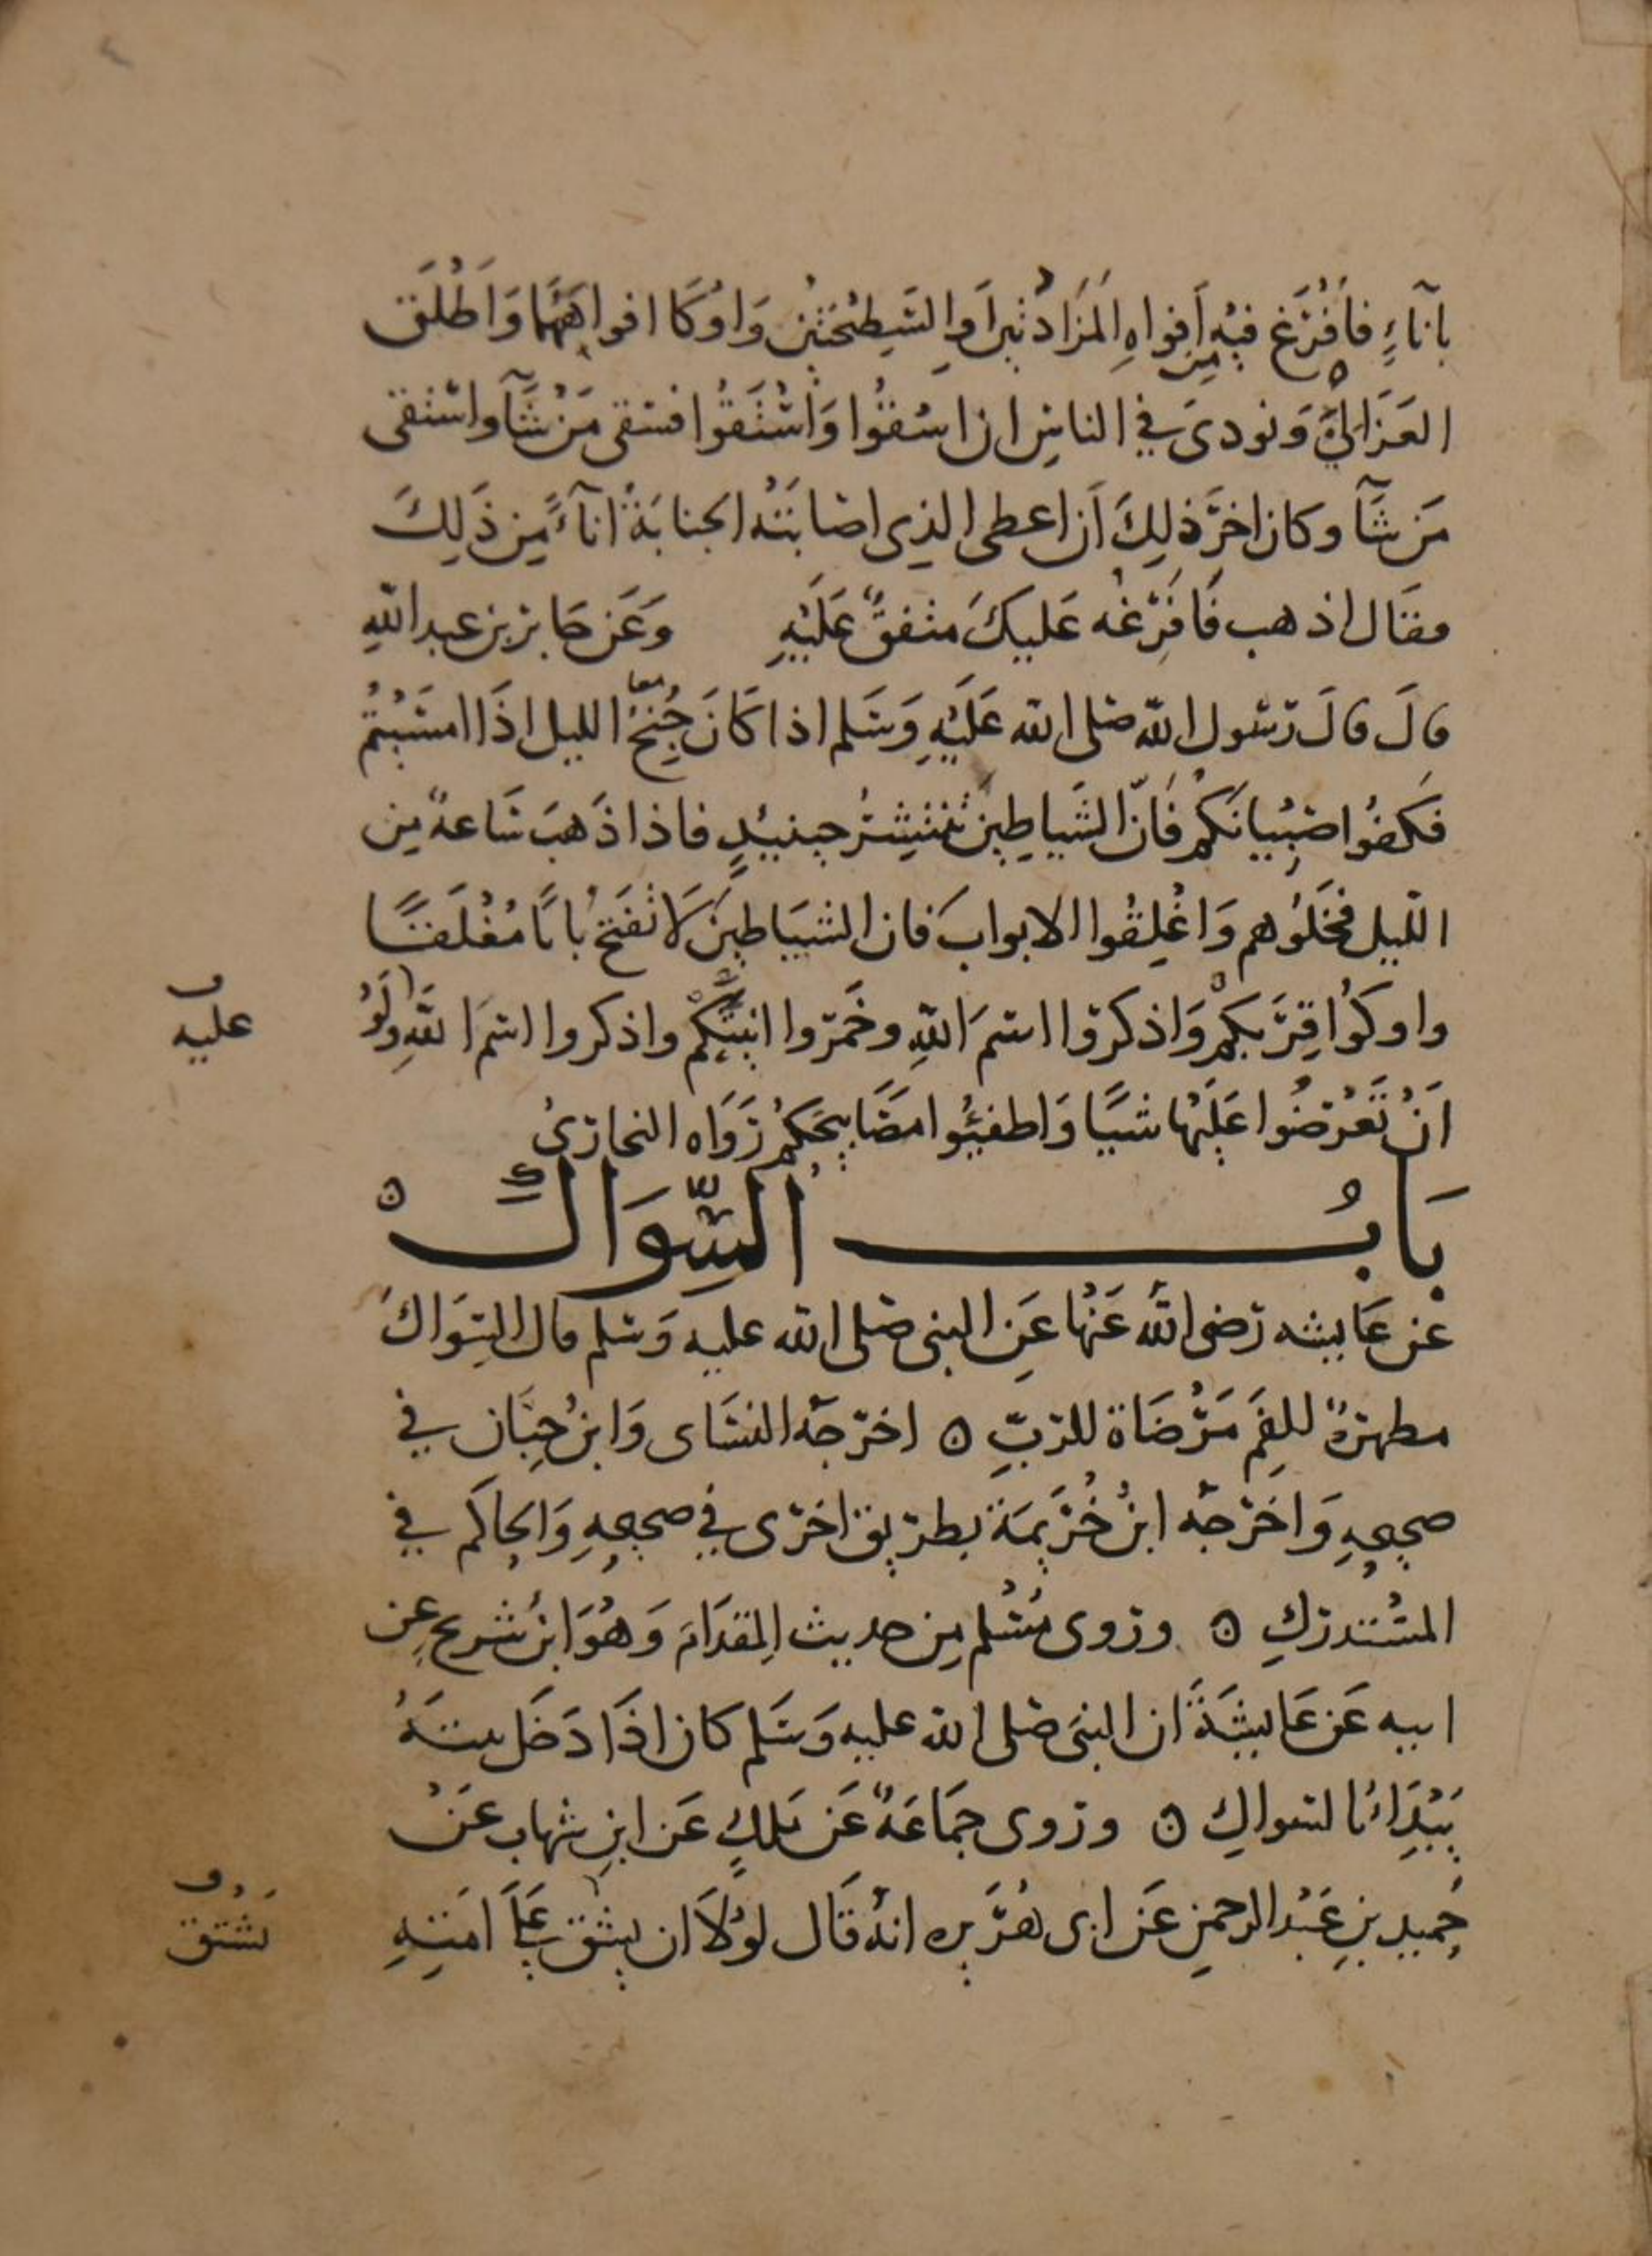 ٤
بآناءٍ فافْرَغ فيْه من أَفواهِ المَزَادتْين اَوِ السَّطِيْحَتيْنِ وَاوْكَا افواهَهُمَا وَاَطْلَق
العَزَاليَّ وَنودىَ في الناسِ ان اسْقُوا وَاسْتَقُوا فسَقى مَنْ شَآ واسْتقى
مَن شَآ وكان اخِرَ ذلِكَ اَن اعطى الذى اصَابَتْهُ الجنابَةُ انآءً مِن ذَلِكَ
فقَال اذهب فَافرِغْه عَليكَ متفقٌ عَلَيْهِ وَعَن جَابر بن عبد اللّٰهِ
قالَ قالَ رَسُول اللّٰه صَلى الله عَلَيْهِ وَسَلم اذا كَانَ جُنِحُ معا الليل اذَا امسَيْتُمْ
فكفُوا صِبْيانَكُمْ فَانّ الشَّياطِينَ تَنتَشِرُ حِينَئِذٍ فاذا ذَهبَ سَاعةٌ مِن
اللّيل فخَلوُهم وَاغْلِقُوا الابوابَ فان الشيَاطينَ لَا تفتَحُ بابًا مُغْلَقًا
واوكُوْا قِرَبكُمْ وَاذكروا اسمَ اللّٰهِ وخَمّروا انيَتَكُمْ واذكروا اسْمَ اللّٰهِ وَلَوْ
عليه
اَنْ تَعْرُضُوا عَلَيْها شيًا وَاطفئُوا مصَابيحَكُمْ رَوَاه البخارىُ
بَابُ السِّوَاكِ
عن عَايشه رَضى اللّٰه عَنْها عَنِ النبى صَلى الله عليه وَسَلم قال السِّوَاكُ
مطهرةٌ للفَمِ مَرْضَاة للرّبِّ ه اخرّجَه النسَاى وَابنُ حِبَّان في
صحيحِهِ وَاخَرّجَه ابنُ خُزَيمَة بطريق اخرَى في صحيحِهِ وَالحاكم في
المسْتدركِ ه وروى مُسْلم مِن حديث المِقدَام وَهُوَ ابنُ شريح عن
ابيه عَن عَايشَةَ ان النبىَ صَلى الله عليه وَسَلم كان اذَا دَخَل بيتَهُ
يَبْدَأُ بالسواكِ ه وروى جمَاعَةٌ عَن مَلكٍ عَن ابنِ شهاب عَنْ
حُميد بنِ عَبْد الرحمنِ عَن ابى هُرَيره انهُ قَال لوْلَا ان يشق عَلَى امّتِهِ
يَشُقّ